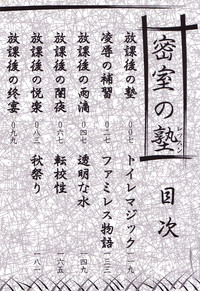 密室の塾
レッスン
目次
放課後の塾
〇〇七
凌辱の補習
〇二七
放課後の雨滴
〇四七
放課後の闇夜
〇六七
放課後の悦楽
〇八三
放課後の終宴
〇九九
トイレマジック
一一九
ファミレス物語
一三三
透明な水
一四九
転校性
一六五
秋祭り
一八一